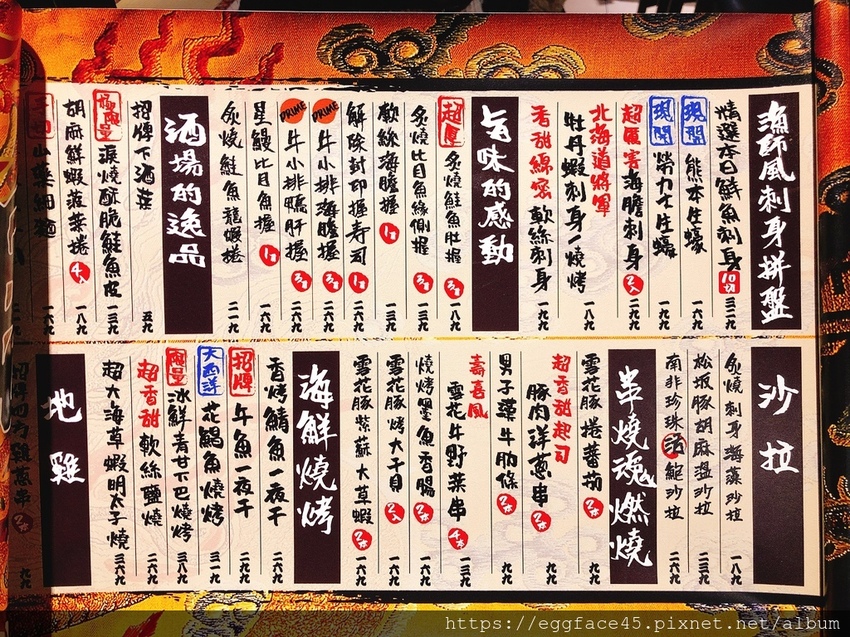 漁師風刺身拼盤
精選本日鮮魚刺身 10切 三二九
現開 熊本生蠔 一六九
現開 勞力士生蠔 一九九
超厲害海膽刺身 2入 二九九
北海道將軍
牡丹蝦刺身/燒烤 一八九
香甜綿密 軟絲刺身 一九九
旨味的感動
超厚 炙燒鮭魚肚握 3貫 一八九
炙燒比目魚緣側握 3貫 一六九
軟絲海膽握 1貫 一三九
解除封印握壽司 1貫 一六九
PRIME 牛小排海膽握 3貫 二六九
PRIME 牛小排鴨肝握 3貫 二六九
星鰻比目魚握 1貫
炙燒鮭魚龍蝦捲 二一九
酒場的逸品
招牌下酒菜 五九
極限量 淚燒酥脆鮭魚皮 一三九
胡麻鮮蝦菠菜捲 4入 一八九
山藥細麵
沙拉
炙燒刺身海藻沙拉 一八九
松坂豚胡麻溫沙拉 二三九
南非珍珠活鮑沙拉 二六九
串燒魂燃燒
雪花豚捲蕃茄 2本 九九
超香甜起司
豚肉洋蔥串 2本 九九
男子漢牛肋條 2本 九九
壽喜風
雪花牛野菜串 4本 一三九
燒烤墨魚香腸 2本 一六九
雪花豚烤大干貝 2入 一六九
雪花豚紫蘇大草蝦 2本 一六九
海鮮燒烤
香烤鯖魚一夜干 二六九
招牌 午魚一夜干 二九九
大西洋 花鯛魚燒烤 三一九
限量 冰鮮青甘下巴燒烤 三八九
超香甜 軟絲鹽燒 二六九
超大海草蝦明太子燒 三六九
地雞
招牌切肉雞蔥串 2本 九九
https://eggface45.pixnet.net/album